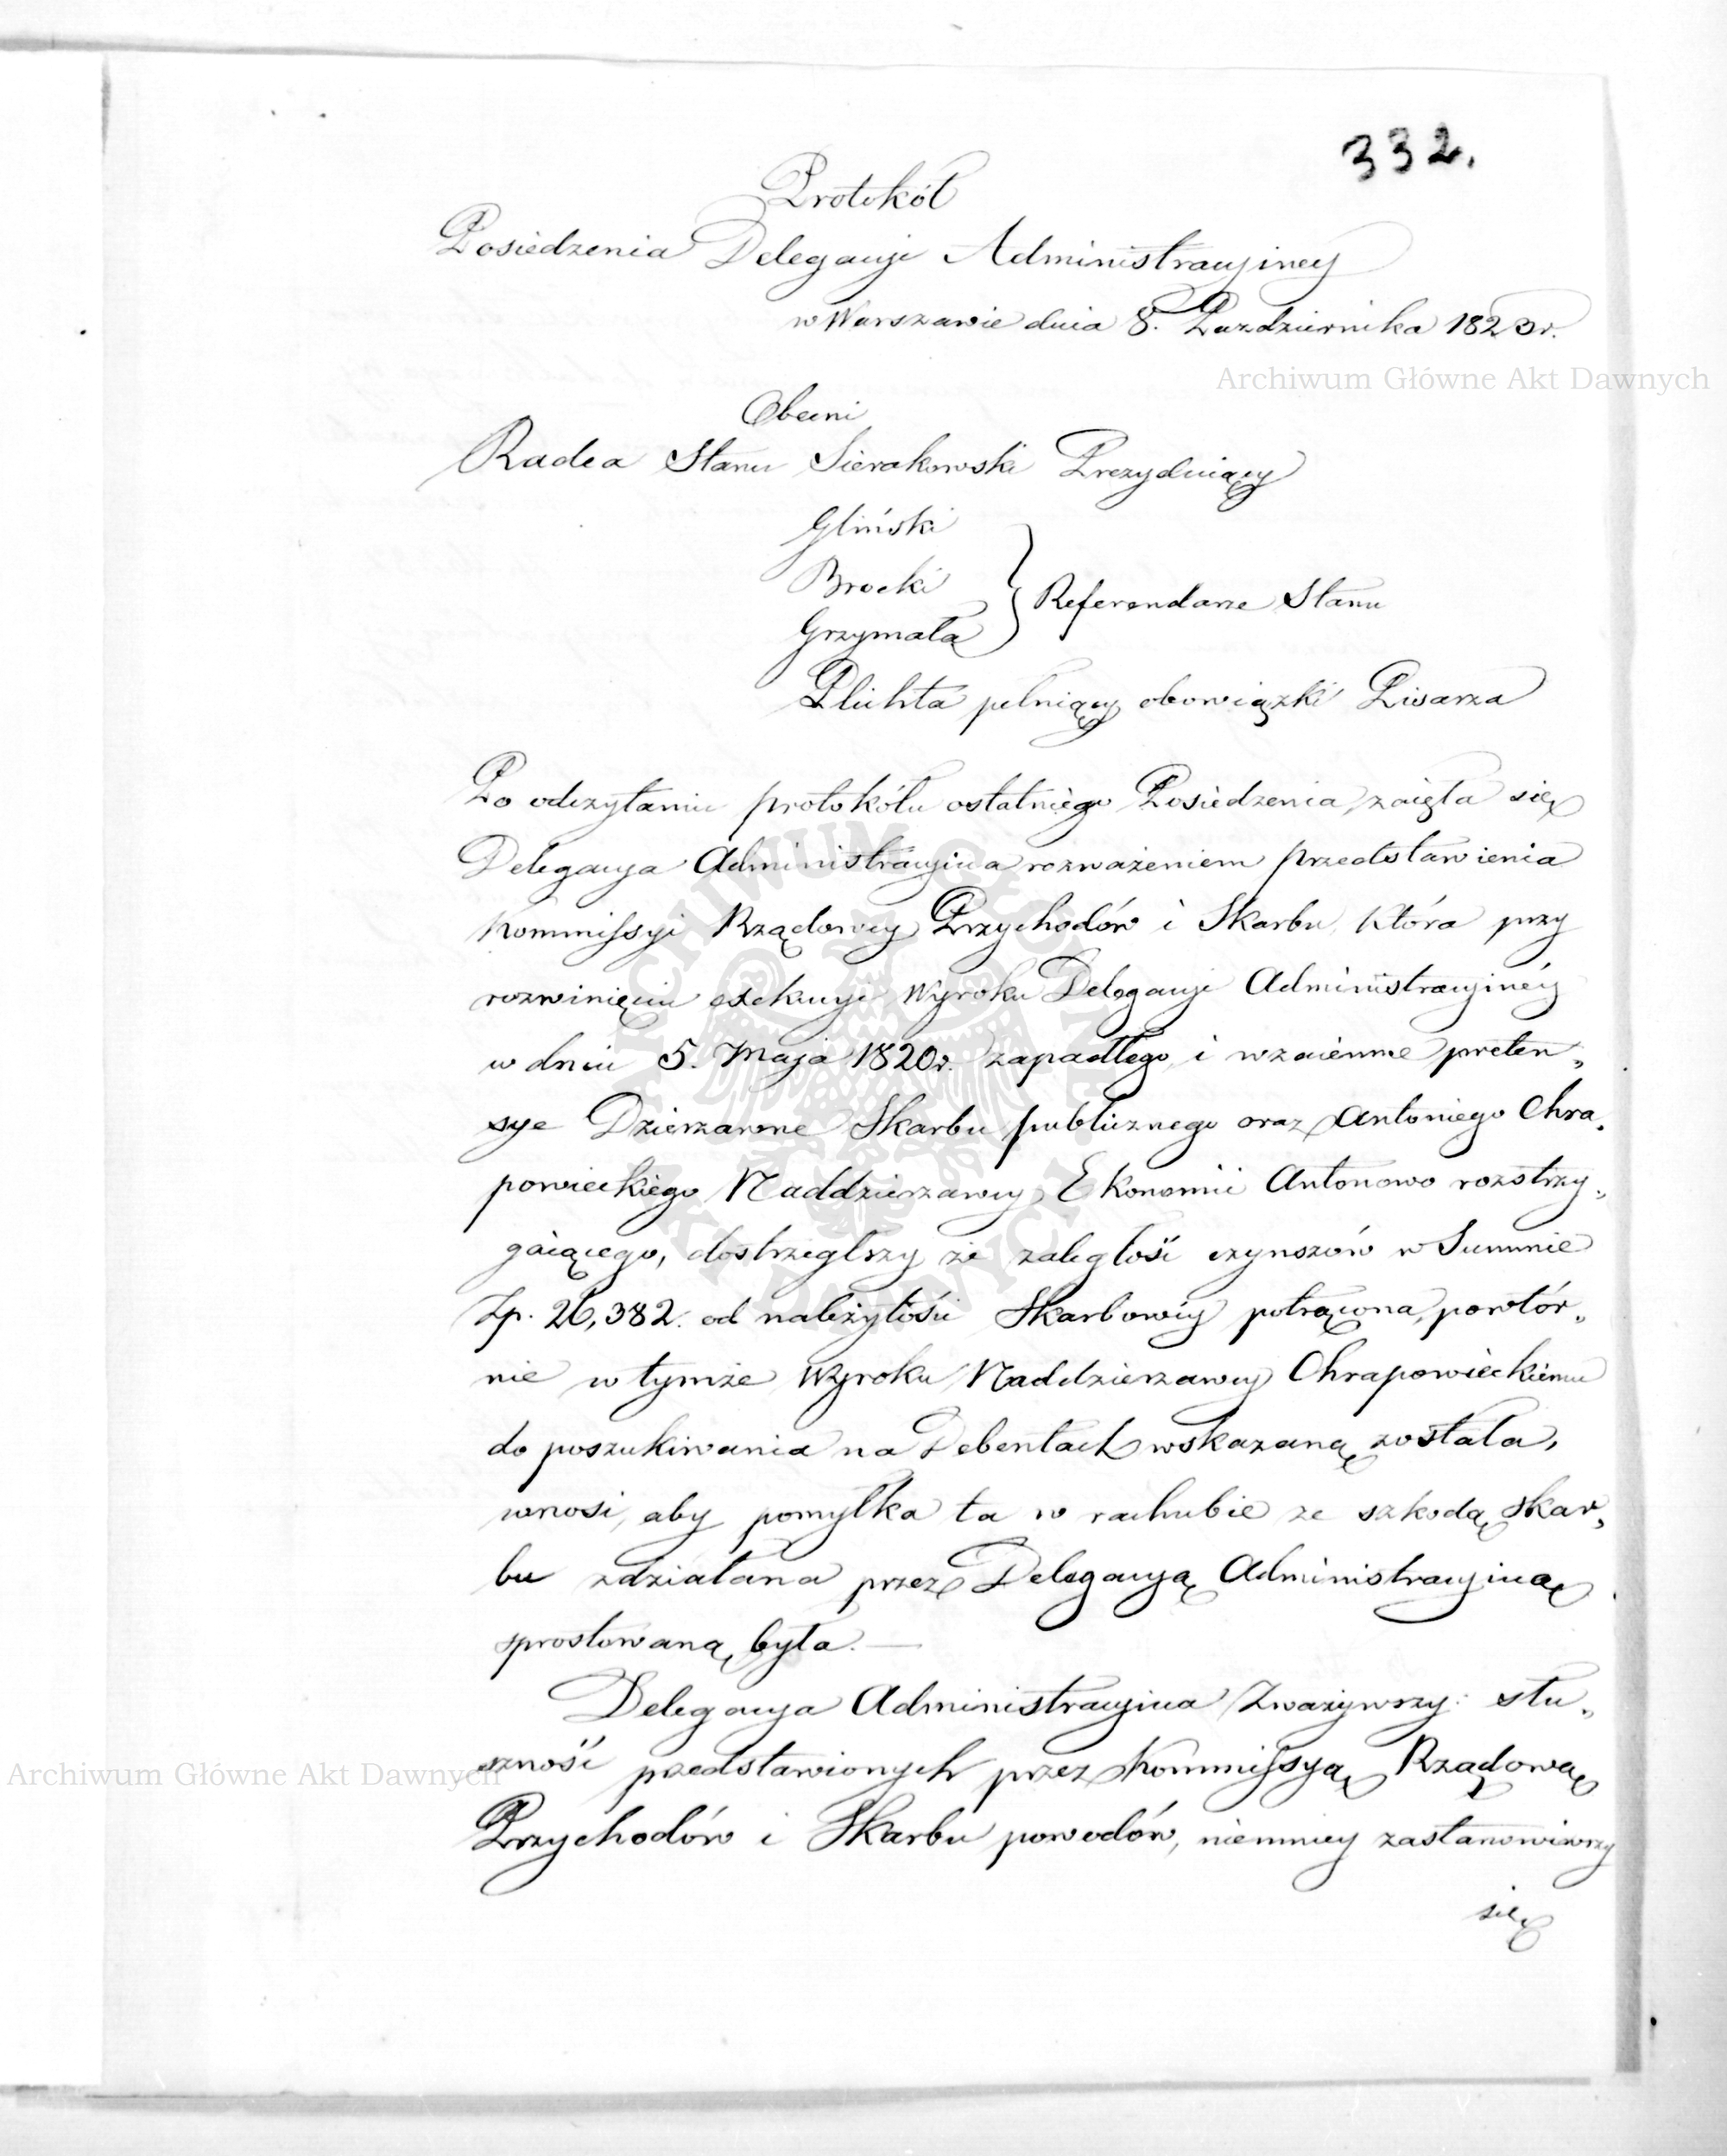 332.
Protokół
Posiedzenia Delegacyi Administracyiney
w Warszawie dnia 8. Pazdziernika 1823r.
Archiwum Główne Akt Dawnych
Obecni
Radca Stanu Sierakowski Prezyduiący
Gliński
Brocki
Grzymała
Referendarze Stanu
Plichta pełniący obowiązki Pisarza
Po odczytaniu protokółu ostatniego Posiedzenia, zaięła się
Delegacya Administracyina rozważeniem przedstawienia
Kommissyi Rządowey Przychodów i Skarbu, która przy
rozwinięciu exekucyi Wyroku Delegacyi Administracyinéy
w dniu 5. Maja 1820r. zapadłego, i wzaiemne preten„
sye Dzierzawne Skarbu publicznego oraz Antoniego Chra„
powieckiego Naddzierzawcy Ekonomii Antonowo rozstrzy„
gaiącego, dostrzegłszy że zaległość czynszów w Summie
Zp. 26,382. od należytości Skarbowéy potrącona, powtór„
nie w tymże Wyroku Naddzierzawcy Chrapowieckiemu
do poszukiwania na Debentach wskazaną została,
wnosi, aby pomyłka ta w rachubie ze szkodą Skar„
bu zdziałana przez Delegacyą Administracyiną
sprostowaną była. —
Delegacya Administracyina Zważywszy: słu„
szność przedstawionych przez Kommissyą Rządową
Archiwum Główne Akt Dawnych
Przychodów i Skarbu powodów, niemniey zastanowiwszy
się
ARCHIWUM GŁÓWNE AKT DAWNYCH